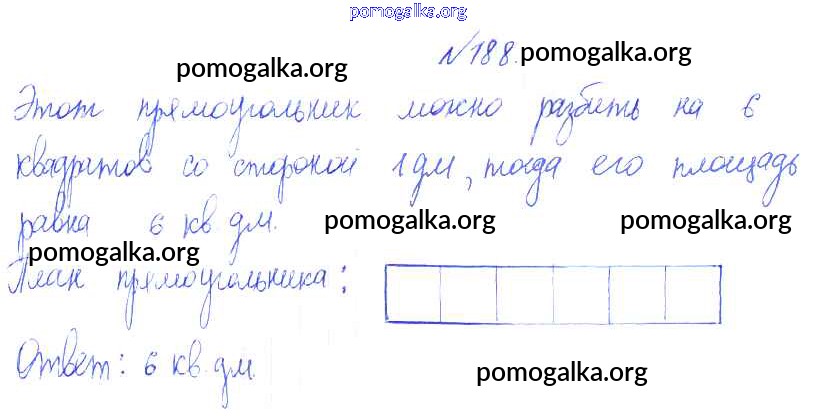 pomogalka.org
№188. pomogalka.org
pomogalka.org
Этот прямоугольник можно разбить на 6
квадратов со стороной 1 дм, тогда его площадь
равна 6 кв. дм. pomogalka.org pomogalka.org
pomogalka.org
План прямоугольника:
Ответ: 6 кв. дм.
pomogalka.org